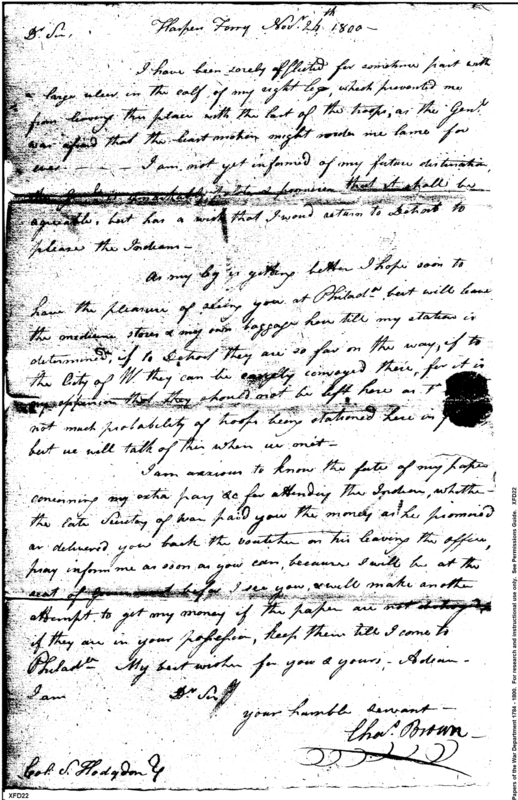 Harpers Ferry Nov.r 24th 1800 -
Dr Sir,
I have been sorely afflicted for sometime past with
a large ulcer in the calf of my right leg, which prevented me
from leaving this place with the last of the troops, as the Genl.
was afraid that the least motion might render me lame for
ever I am not yet informed of my future destination,
the promises that it shall be
agreeable, but has a wish that I woud return to Detroit to
please the Indians -
As my leg is getting better I hope soon to
have the pleasure of seeing you at Philada. but will leave
the medicine stores & my own baggage here till my station is
determined, if to Detroit they are so far on the way, if to
the City of W. they can be easily conveyed there, for it is
my oppinion that they should not be left here as
not much probability of troops being stationed here in
but we will talk of this when we meet -
I am anxious to know the fate of my papers
concerning my extra pay &c for attending the Indians, whether
the late Secretary of war paid you the money as he promised
or delivered you back the voucher on his leaving the office,
pray inform me as soon as you can, because I will be at the
seat of government before I see you, & will make another
attempt to get my money if the paper are not destroy'd
if they are in your possession, keep them till I come to
Philada. My best wishes for you & yours, - Adieu -
I am Dr Sir
your humble servant -
Chas. Brown -
Col. S. Hodgdon
XFD22
Papers of the War Department 1784 - 1800. For research and instructional use only. See Permissions Guide. XFD22